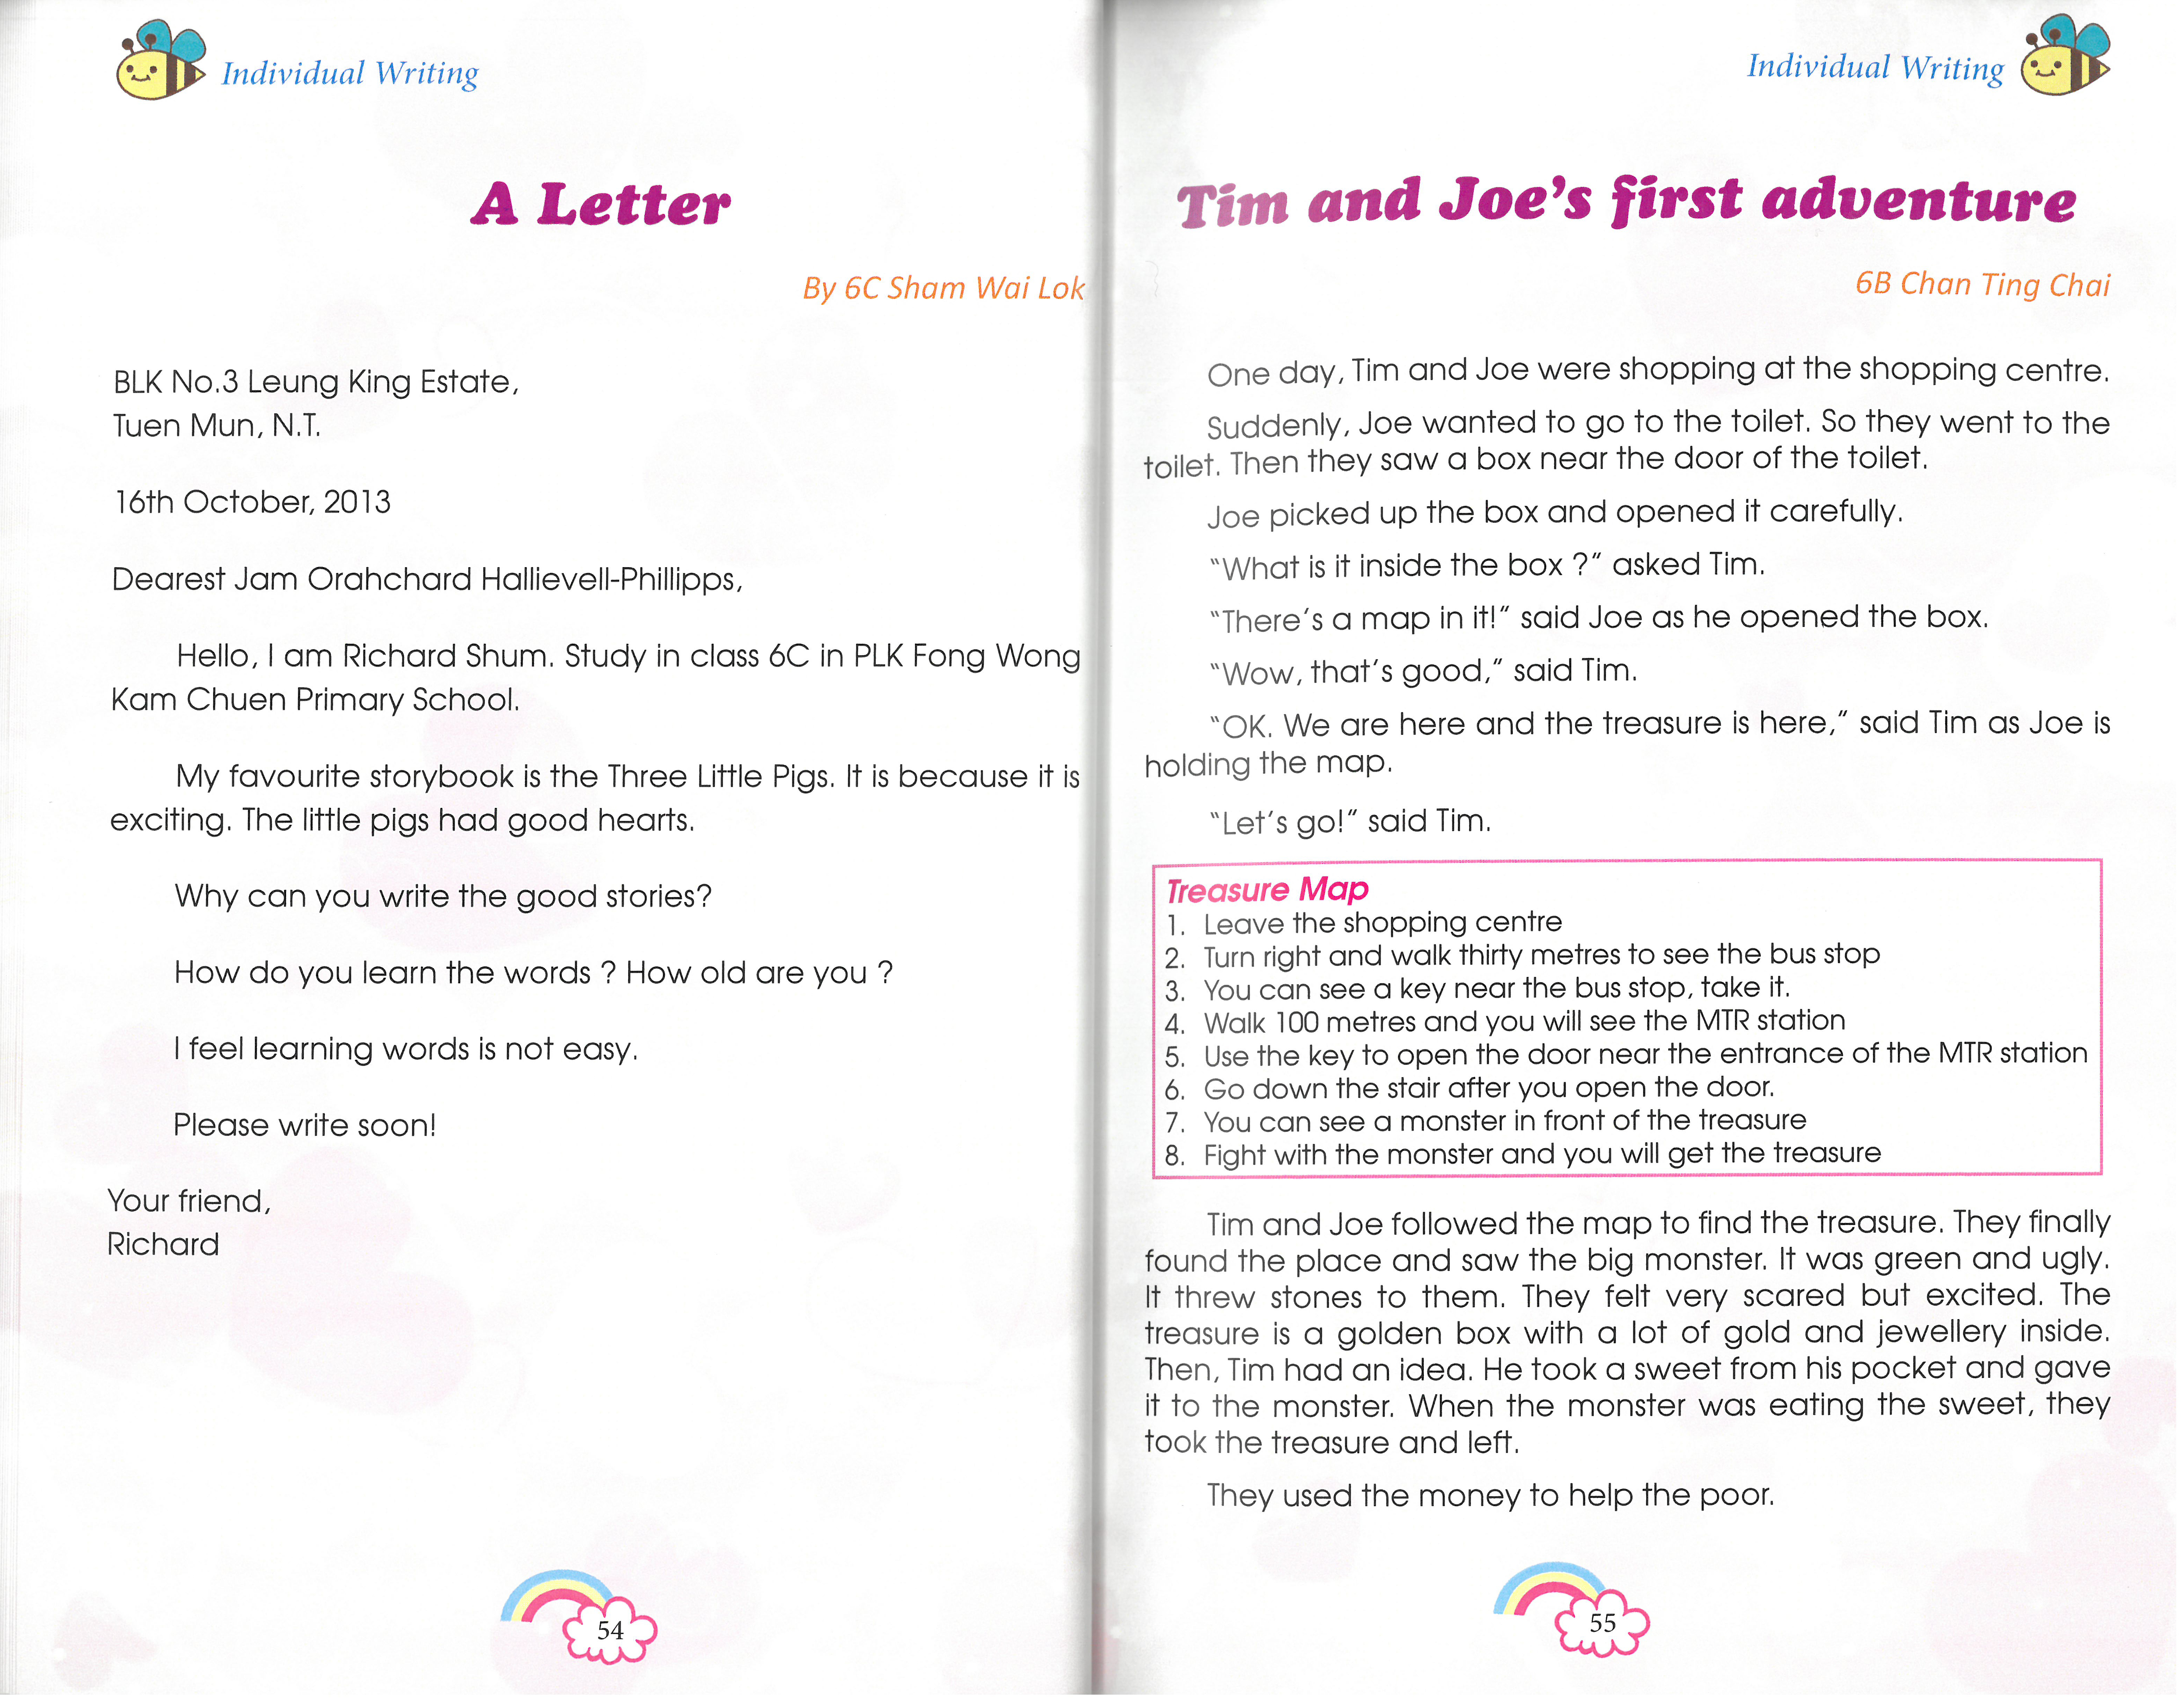 Individual Writing
A Letter
By 6C Sham Wai Lok
BLK No.3 Leung King Estate,
Tuen Mun, N.T.
16th October, 2013
Dearest Jam Orahchard Hallievell-Phillipps,
Hello, I am Richard Shum. Study in class 6C in PLK Fong Wong
Kam Chuen Primary School.
My favourite storybook is the Three Little Pigs. It is because it is
exciting. The little pigs had good hearts.
Why can you write the good stories?
How do you learn the words ? How old are you ?
I feel learning words is not easy.
Please write soon!
Your friend,
Richard
54
Individual Writing
Tim and Joe's first adventure
6B Chan Ting Chai
One day, Tim and Joe were shopping at the shopping centre.
Suddenly, Joe wanted to go to the toilet. So they went to the
toilet. Then they saw a box near the door of the toilet.
Joe picked up the box and opened it carefully.
"What is it inside the box ?" asked Tim.
"There's a map in it!" said Joe as he opened the box.
"Wow, that's good," said Tim.
"OK. We are here and the treasure is here," said Tim as Joe is
holding the map.
"Let's go!" said Tim.
Treasure Map
1. Leave the shopping centre
2. Turn right and walk thirty metres to see the bus stop
3. You can see a key near the bus stop, take it.
4. Walk 100 metres and you will see the MTR station
5. Use the key to open the door near the entrance of the MTR station
6. Go down the stair after you open the door.
7. You can see a monster in front of the treasure
8. Fight with the monster and you will get the treasure
Tim and Joe followed the map to find the treasure. They finally
found the place and saw the big monster. It was green and ugly.
It threw stones to them. They felt very scared but excited. The
treasure is a golden box with a lot of gold and jewellery inside.
Then, Tim had an idea. He took a sweet from his pocket and gave
it to the monster. When the monster was eating the sweet, they
took the treasure and left.
They used the money to help the poor.
55